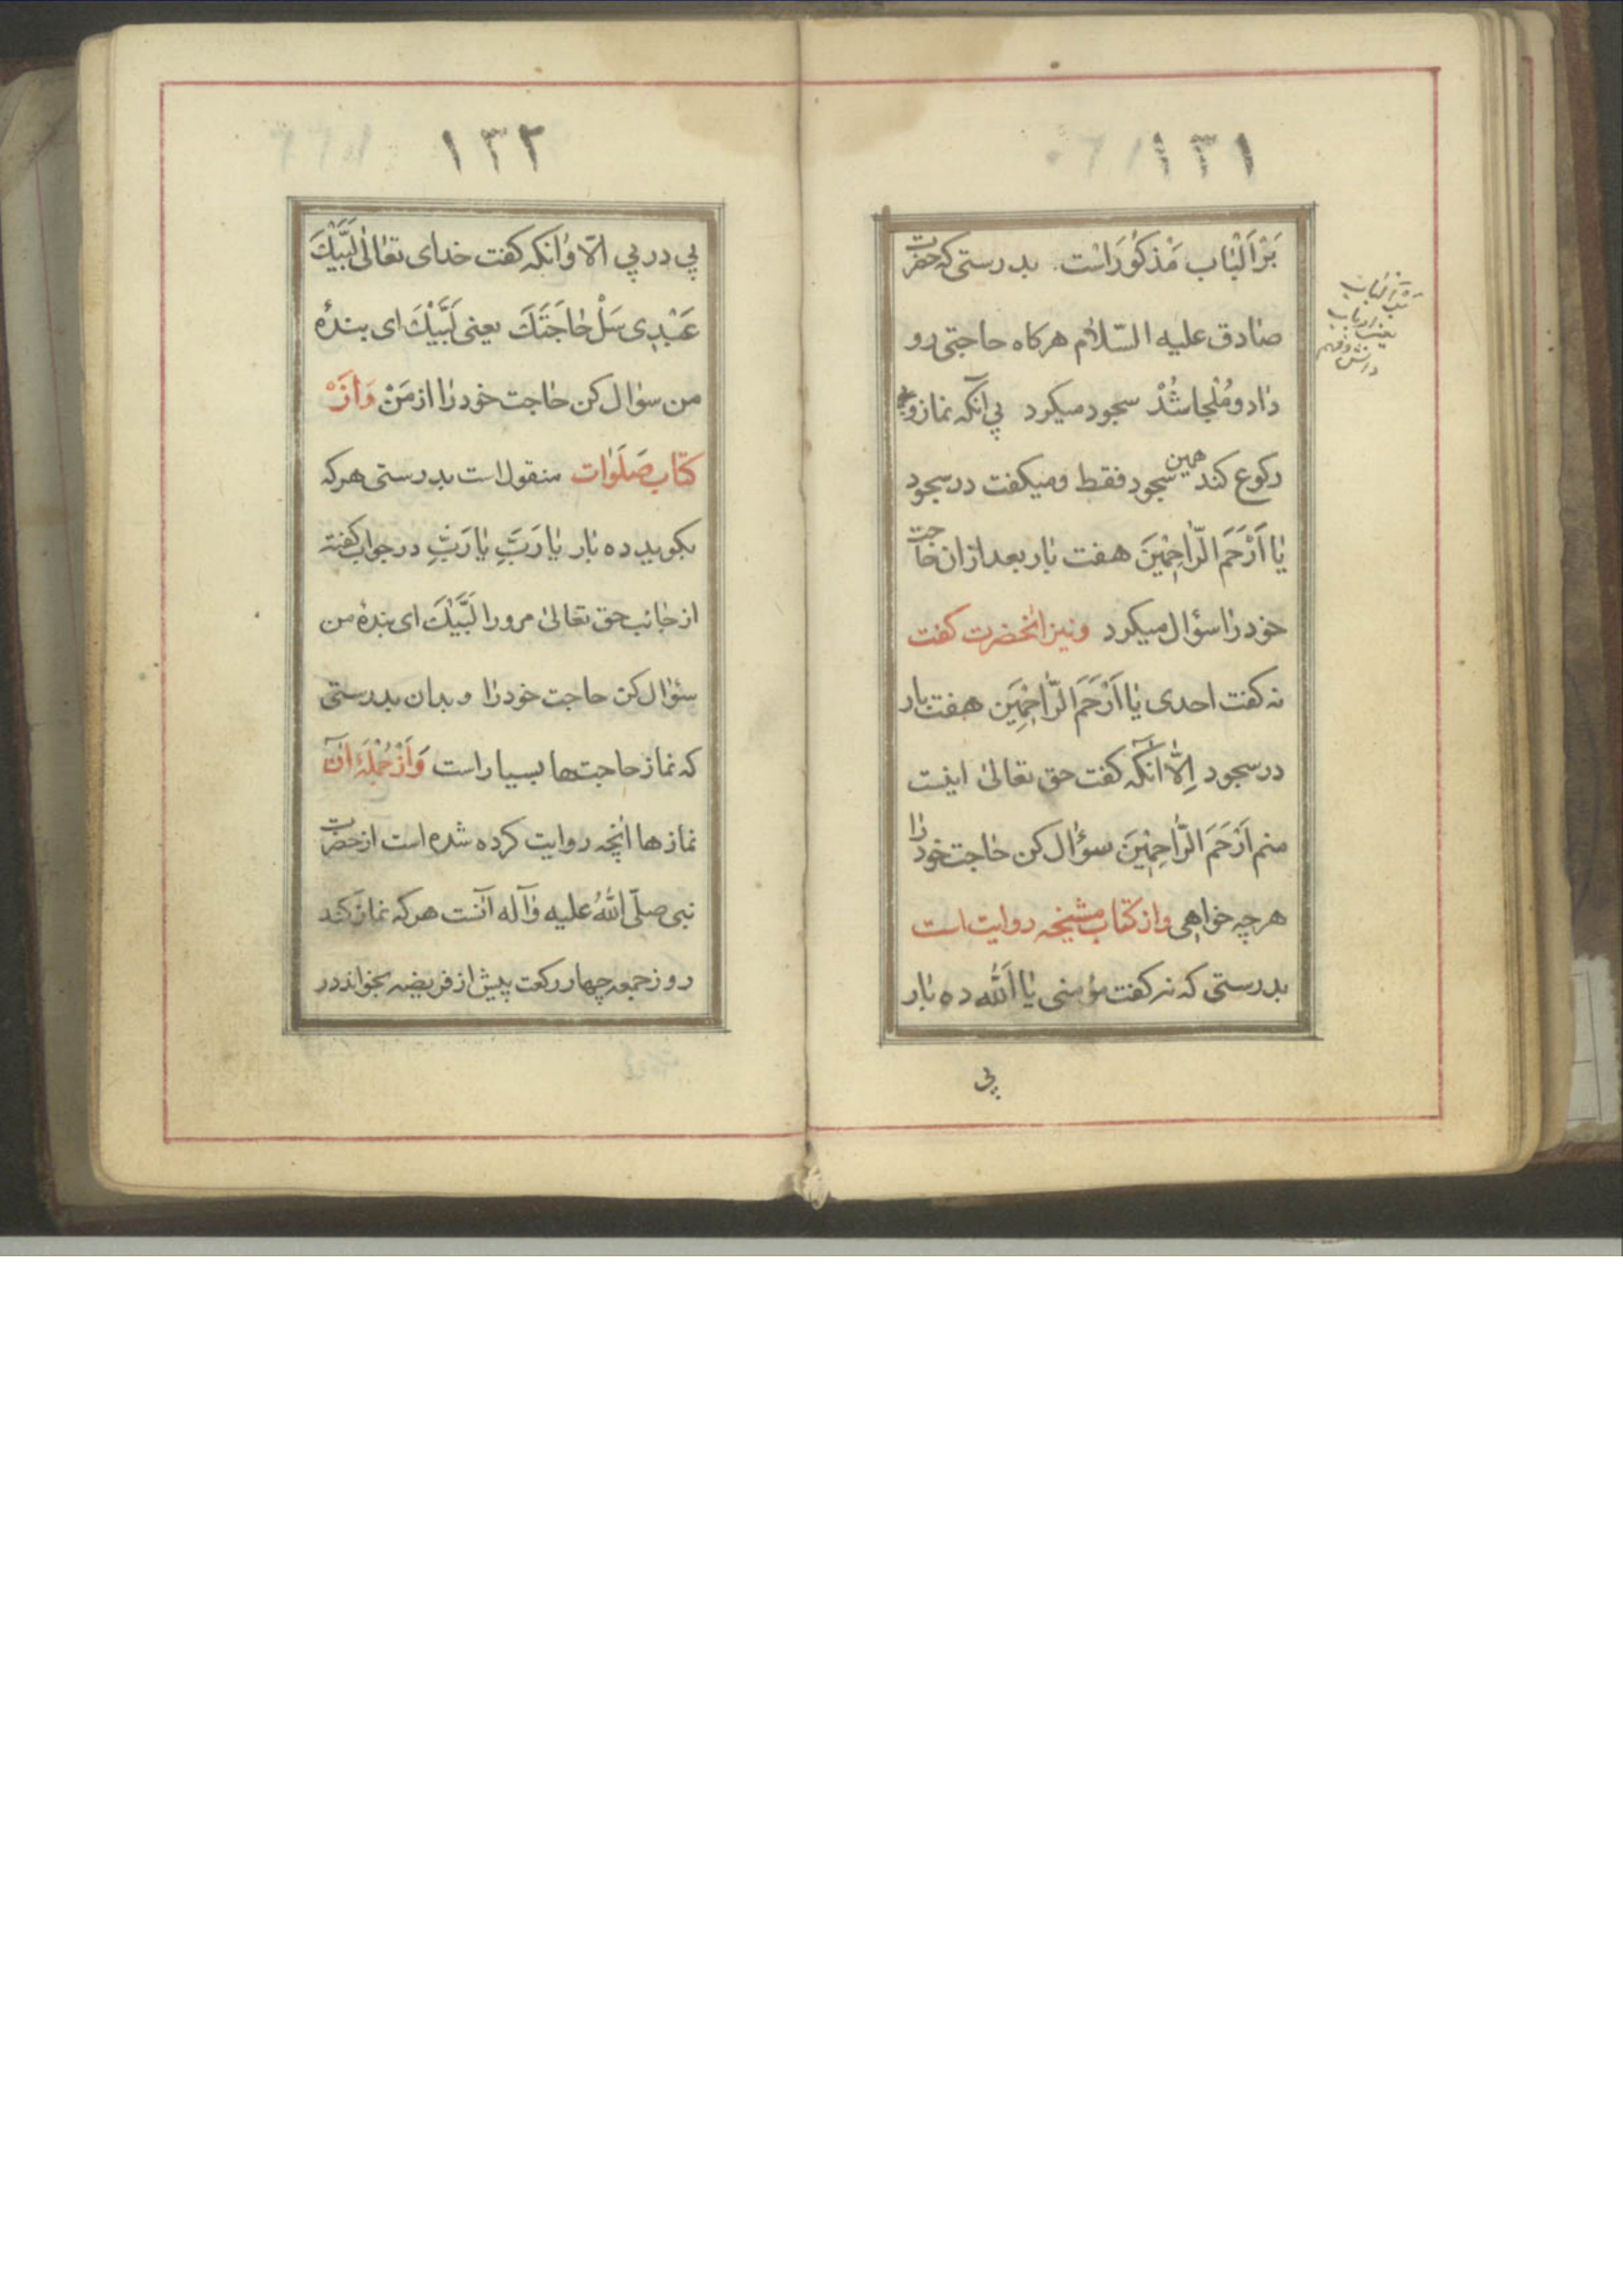 ١٣١
بَرْاَلْبٰاب مَذْكُورْاست. بدرستی که حضرت
صٰادق علیه السّلام هرکاه حاجتی رو
دٰاد و مُلْجٰا شُدْ سجود میکرد پی آنکه نماز و
رکوع کند همین سجود فقط و میکفت در سجود
یٰا اَرْحَمَ الرّٰاحِمٖینَ هفت بٰار بعد ازان حٰاجت
خود رٰا سؤال میکرد و نیز انحضرت کفت
نه کفت احدی یٰا اَرْحَمَ الرّٰاحِمٖینَ هفت بار
در سجود اِلّٰا آنکه کفت حق تعالیٰ اینست
منم اَرْحَمَ الرّٰاحِمٖینَ سؤال کن حٰاجت خود رٰا
هرچه خواهی و از کتاب مشیخه روایت است
بدرستی که نه کفت مؤمنی یٰا اَللّٰه ده بٰار
پی
بر البٰاب
یعنی ارباب
دانش و فهم
١٣٢
پی در پی الّا وٰانکه کفت خدای تعٰالیٰ لَبَّیْكَ
عَبْدِی سَلْ حٰاجَتَكَ یعنی لَبَّیْكَ ای بندهٔ
من سؤال کن حٰاجت خود رٰا از مَنْ وَازْ
کتاب صَلَوٰات منقول است بدرستی هر که
بکوید ده بٰار یٰا رَبِّ یٰا رَبِّ در جواب کفته
از جٰانب حق تعٰالیٰ مرورا لَبَّیْكَ ای بندهٔ من
سؤال کن حاجت خود رٰا و بدان بدرستی
که نماز حاجت‌ها بسیار است وَازْ جُمْلَهٔ آن
نمازها انچه روایت کرده شده است از حضرت
نبی صلّی اللّٰهُ علیه وَآله آنست هر که نماز کند
روز جمعه چهار رکعت پیش از فریضه بخواند در